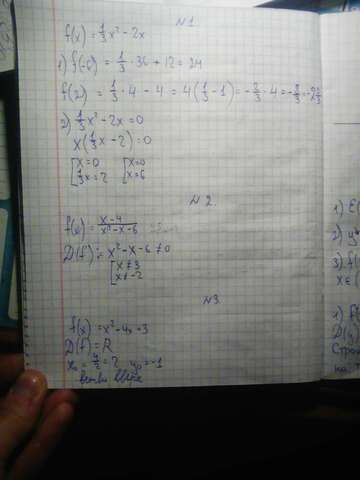 №1
f(x) = 1/3 x² - 2x
1) f(-6) = 1/3 · 36 + 12 = 24
f(2) = 1/3 · 4 - 4 = 4(1/3 - 1) = -2/3 · 4 = -8/3 = -2 2/3
2) 1/3 x² - 2x = 0
x(1/3 x - 2) = 0
[x = 0 [x = 0
[1/3 x = 2 [x = 6
№2.
f(x) = x-4 / x²-x-6
D(f): x² - x - 6 ≠ 0
[x ≠ 3
x ≠ -2
№3.
f(x) = x² - 4x + 3
D(f) = R
x₀ = 4/2 = 2 y₀ = -1
ветви вверх
1) E(
2) y
3) f(
x ∈ (
1) f(
D(y
Стро
на